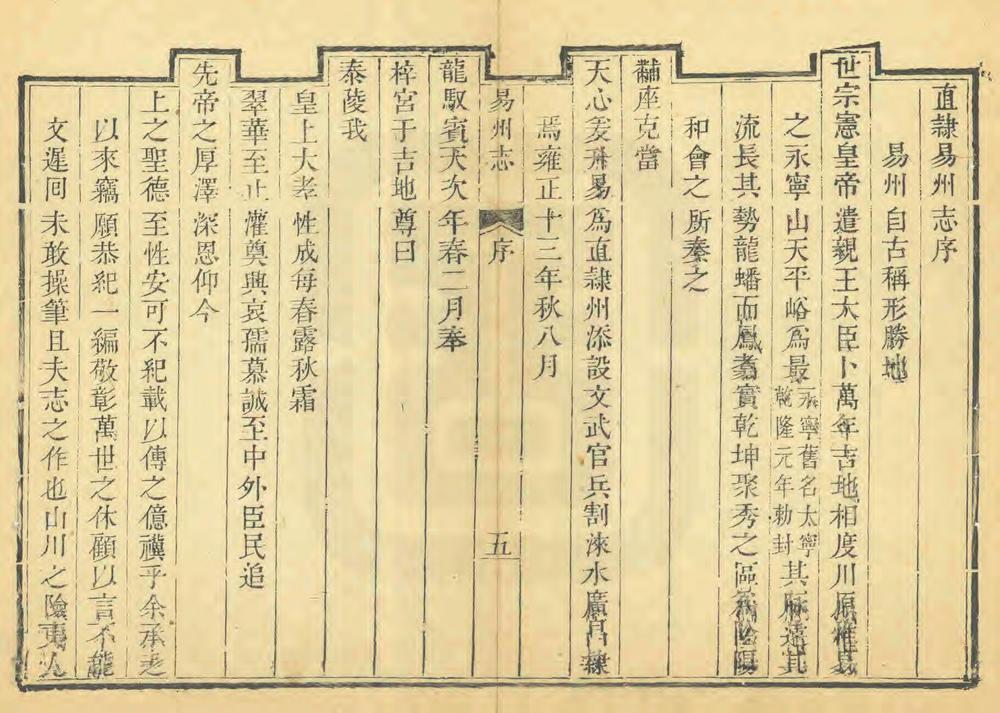 直隸易州志序
易州自古稱形勝地
世宗憲皇帝遣親王大臣卜萬年吉地相度川原惟易
之永寧山天平峪爲最永寧舊名太寧乾隆元年勅封其脈遠其
流長其勢龍蟠而鳳翥實乾坤聚秀之區爲陰陽
和會之所奏之
黼座克當
天心爰升易爲直隸州添設文武官兵割淶水廣昌隸
焉雍正十三年秋八月
易州志 序 五
龍馭賓天次年春二月奉
梓宮于吉地尊曰
泰陵我
皇上大孝性成每春露秋霜
翠華至止灌奠興哀孺慕誠至中外臣民追
先帝之厚澤深恩仰今
上之聖德至性安可不紀載以傳之億禩乎余承乏
以來竊願恭紀一編敬彰萬世之休顧以言不能
文遲回未敢操筆且夫志之作也山川之險夷人